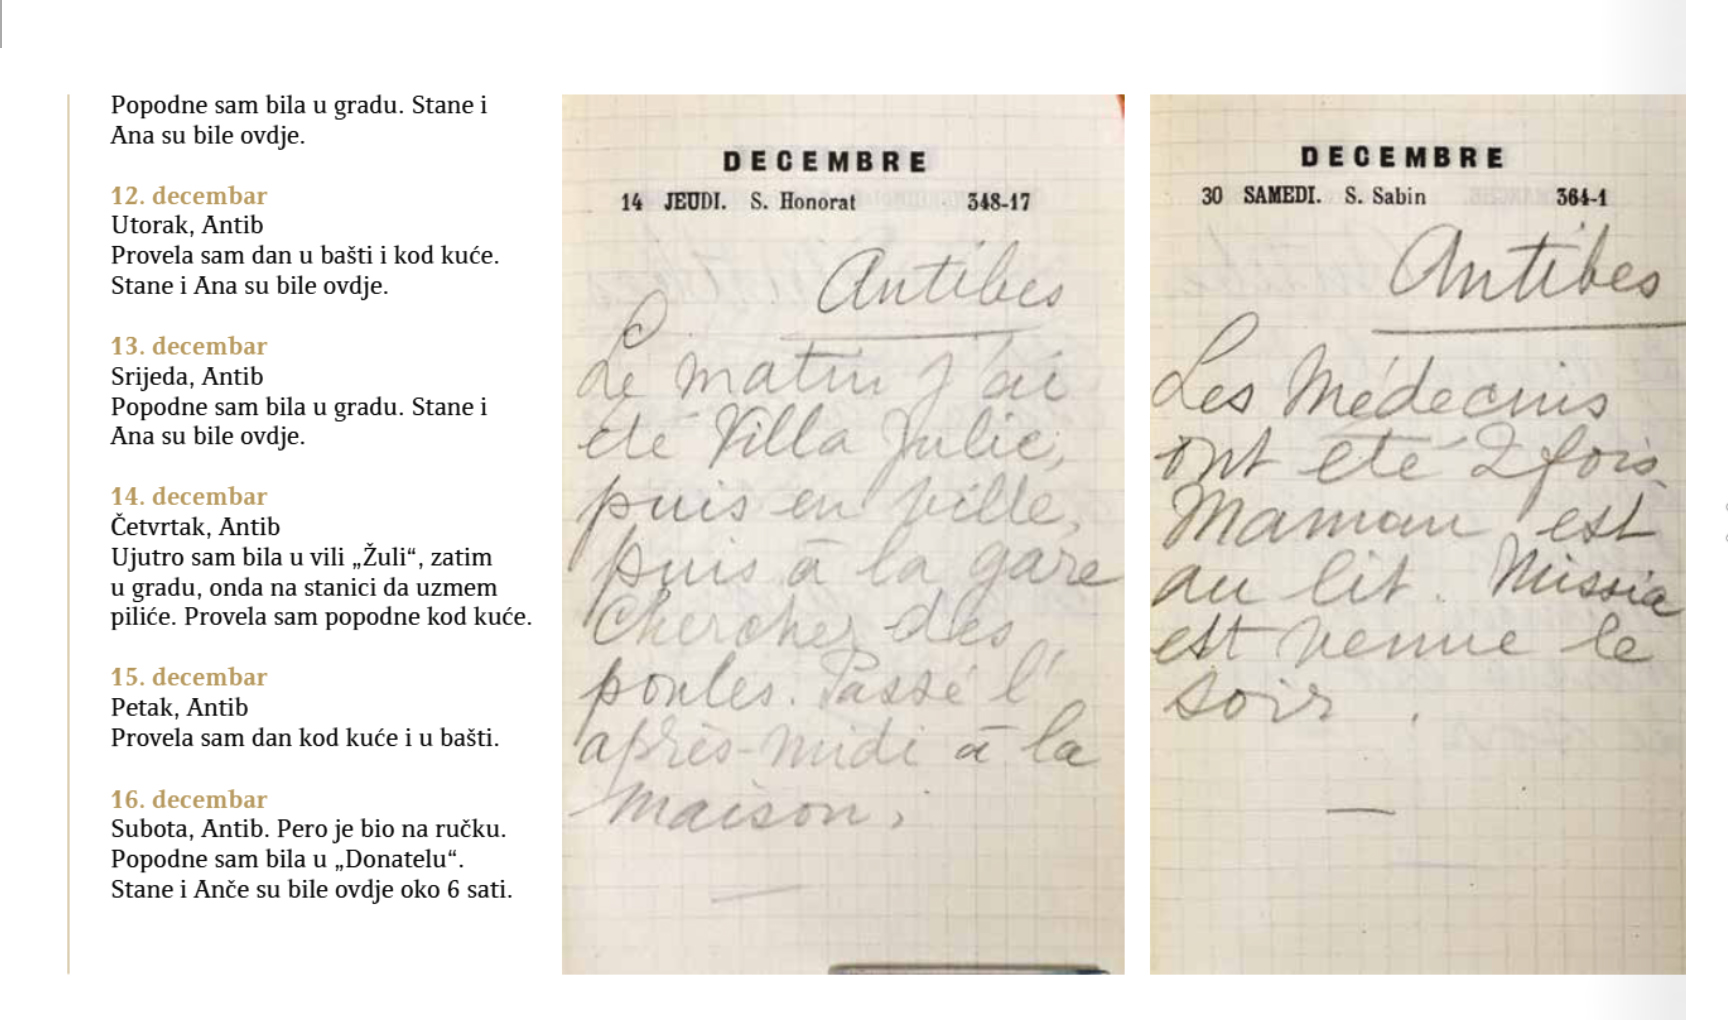 Popodne sam bila u gradu. Stane i
Ana su bile ovdje.
12. decembar
Utorak, Antib
Provela sam dan u bašti i kod kuće.
Stane i Ana su bile ovdje.
13. decembar
Srijeda, Antib
Popodne sam bila u gradu. Stane i
Ana su bile ovdje.
14. decembar
Četvrtak, Antib
Ujutro sam bila u vili „Žuli“, zatim
u gradu, onda na stanici da uzmem
piliće. Provela sam popodne kod kuće.
15. decembar
Petak, Antib
Provela sam dan kod kuće i u bašti.
16. decembar
Subota, Antib. Pero je bio na ručku.
Popodne sam bila u „Donatelu“.
Stane i Anče su bile ovdje oko 6 sati.
DECEMBRE
14 JEUDI. S. Honorat 348-17
Antibes
Le matin j'ai
été Villa Julie,
puis en ville,
puis à la gare
chercher des
poules. Passé l'
après-midi à la
maison.
DECEMBRE
30 SAMEDI. S. Sabin 364-1
Antibes
Les Médecins
ont été 2 fois.
Maman est
au lit. Missia
est venue le
soir.